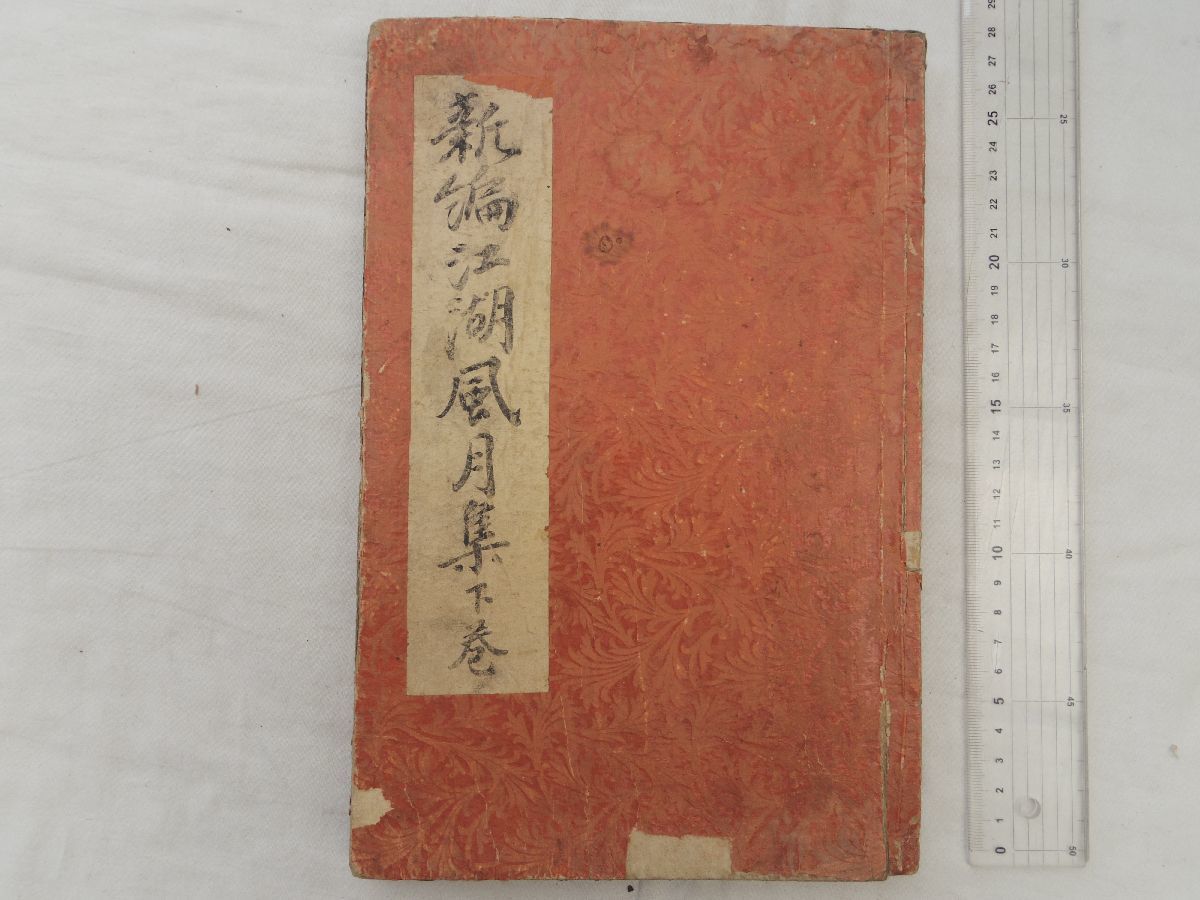 新編江湖風月集下巻
29
28
27
26
25
24
23
22
21
20
19
18
17
16
15
14
13
12
11
10
9
8
7
6
5
4
3
2
1
0
25
30
35
40
45
50